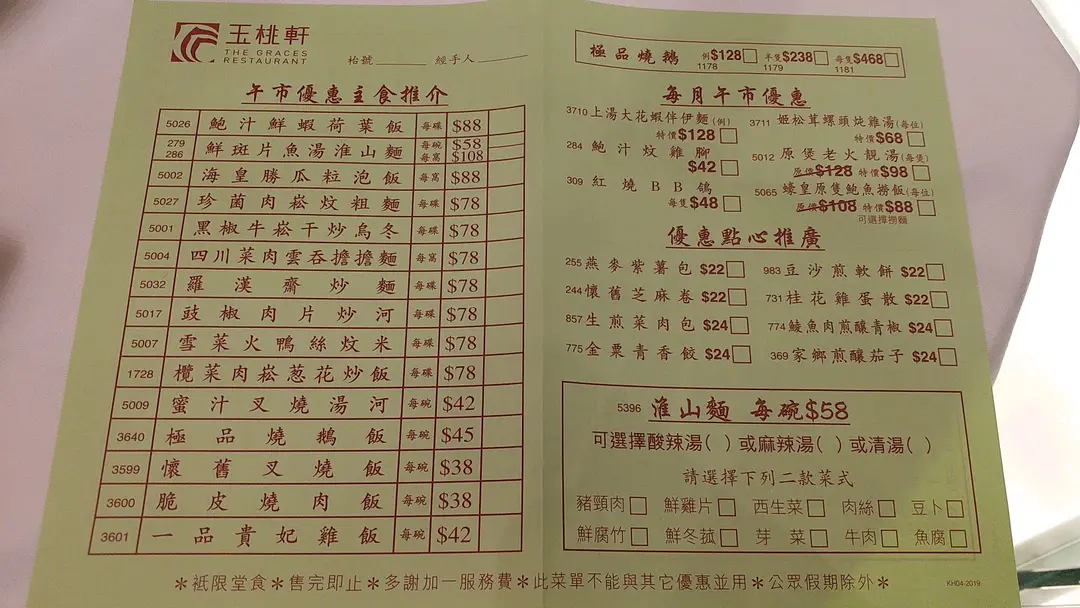 玉桃軒
THE GRACES
RESTAURANT
枱號______ 經手人______
午市優惠主食推介
5026 鮑汁鮮蝦荷葉飯 每碟 $88
279 鮮斑片魚湯淮山麵 每碗 $58
286 每窩 $108
5002 海皇勝瓜粒泡飯 每窩 $88
5027 珍菌肉崧炆粗麵 每碟 $78
5001 黑椒牛崧干炒烏冬 每碟 $78
5004 四川菜肉雲吞擔擔麵 每窩 $78
5032 羅漢齋炒麵 每碟 $78
5017 豉椒肉片炒河 每碟 $78
5007 雪菜火鴨絲炆米 每碟 $78
1728 欖菜肉崧葱花炒飯 每碟 $78
5009 蜜汁叉燒湯河 每碗 $42
3640 極品燒鵝飯 每碗 $45
3599 懷舊叉燒飯 每碗 $38
3600 脆皮燒肉飯 每碗 $38
3601 一品貴妃雞飯 每碗 $42
極品燒鵝 例$128 半隻$238 每隻$468
1178 1179 1181
每月午市優惠
3710 上湯大花蝦伴伊麵(例) 特價$128
3711 姬松茸螺頭炖雞湯(每位) 特價$68
284 鮑汁炆雞腳 $42
5012 原煲老火靚湯(每煲) 原價$128 特價$98
309 紅燒BB鴿 每隻$48
5065 蠔皇原隻鮑魚撈飯(每位) 原價$108 特價$88
可選擇撈麵
優惠點心推廣
255 燕麥紫薯包 $22 983 豆沙煎軟餅 $22
244 懷舊芝麻卷 $22 731 桂花雞蛋散 $22
857 生煎菜肉包 $24 774 鯪魚肉煎釀青椒 $24
775 金粟青香餃 $24 369 家鄉煎釀茄子 $24
5396 淮山麵 每碗$58
可選擇酸辣湯( )或麻辣湯( )或清湯( )
請選擇下列二款菜式
豬頸肉 鮮雞片 西生菜 肉絲 豆卜
鮮腐竹 鮮冬菰 芽菜 牛肉 魚腐
＊衹限堂食＊售完即止＊多謝加一服務費＊此菜單不能與其它優惠並用＊公眾假期除外＊
KH04-2019